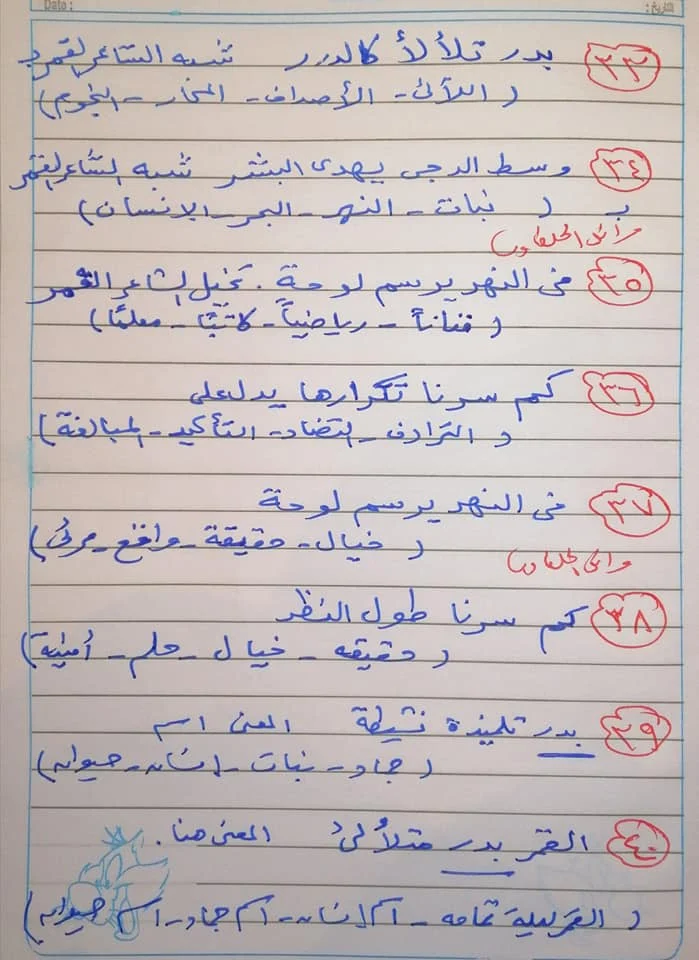 Date : التاريخ:
٣٣ بدر تلألأ كالدرر شبه الشاعر القمر بـ
( اللآلئ - الأصداف - المحار - النجوم )
٣٤ وسط الدجى يهدى البشر شبه الشاعر القمر
بـ ( نبات - النهر - البحر - الإنسان )
وائل الحلفاوى
٣٥ فى النهر يرسم لوحة . تخيل الشاعر القمر
( فناناً - رياضياً - كاتبًا - معلمًا )
٣٦ كم سرنا تكرارها يدل على
( الترادف - التضاد - التأكيد - المبالغة )
٣٧ فى النهر يرسم لوحة
( خيال - حقيقة - واقع - مرئى )
٣٨ كم سرنا طول النظر
( حقيقه - خيال - حلم - أمنية )
٣٩ بدر تلميذة نشيطة المعنى اسم
( جماد - نبات - إنسان - حيوان )
٤٠ القمر بدر متلألئ المعنى هنا .
( القمر ليلة تمامه - اسم إنسان - اسم جماد - اسم حيوان )